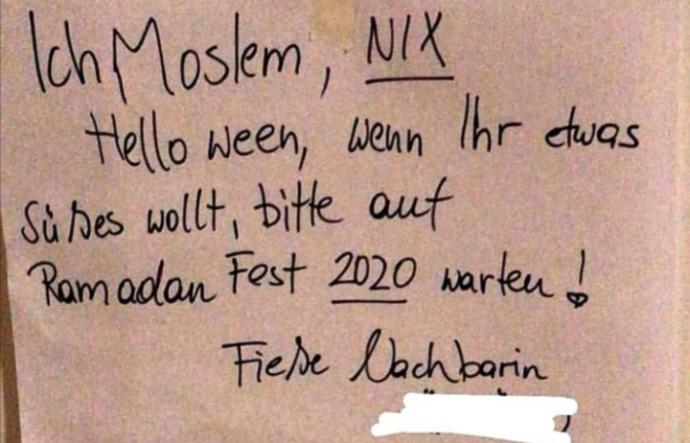 Ich Moslem, NIX
Hello ween, wenn Ihr etwas
Süßes wollt, bitte auf
Ramadan Fest 2020 warten!
Fieße Nachbarin